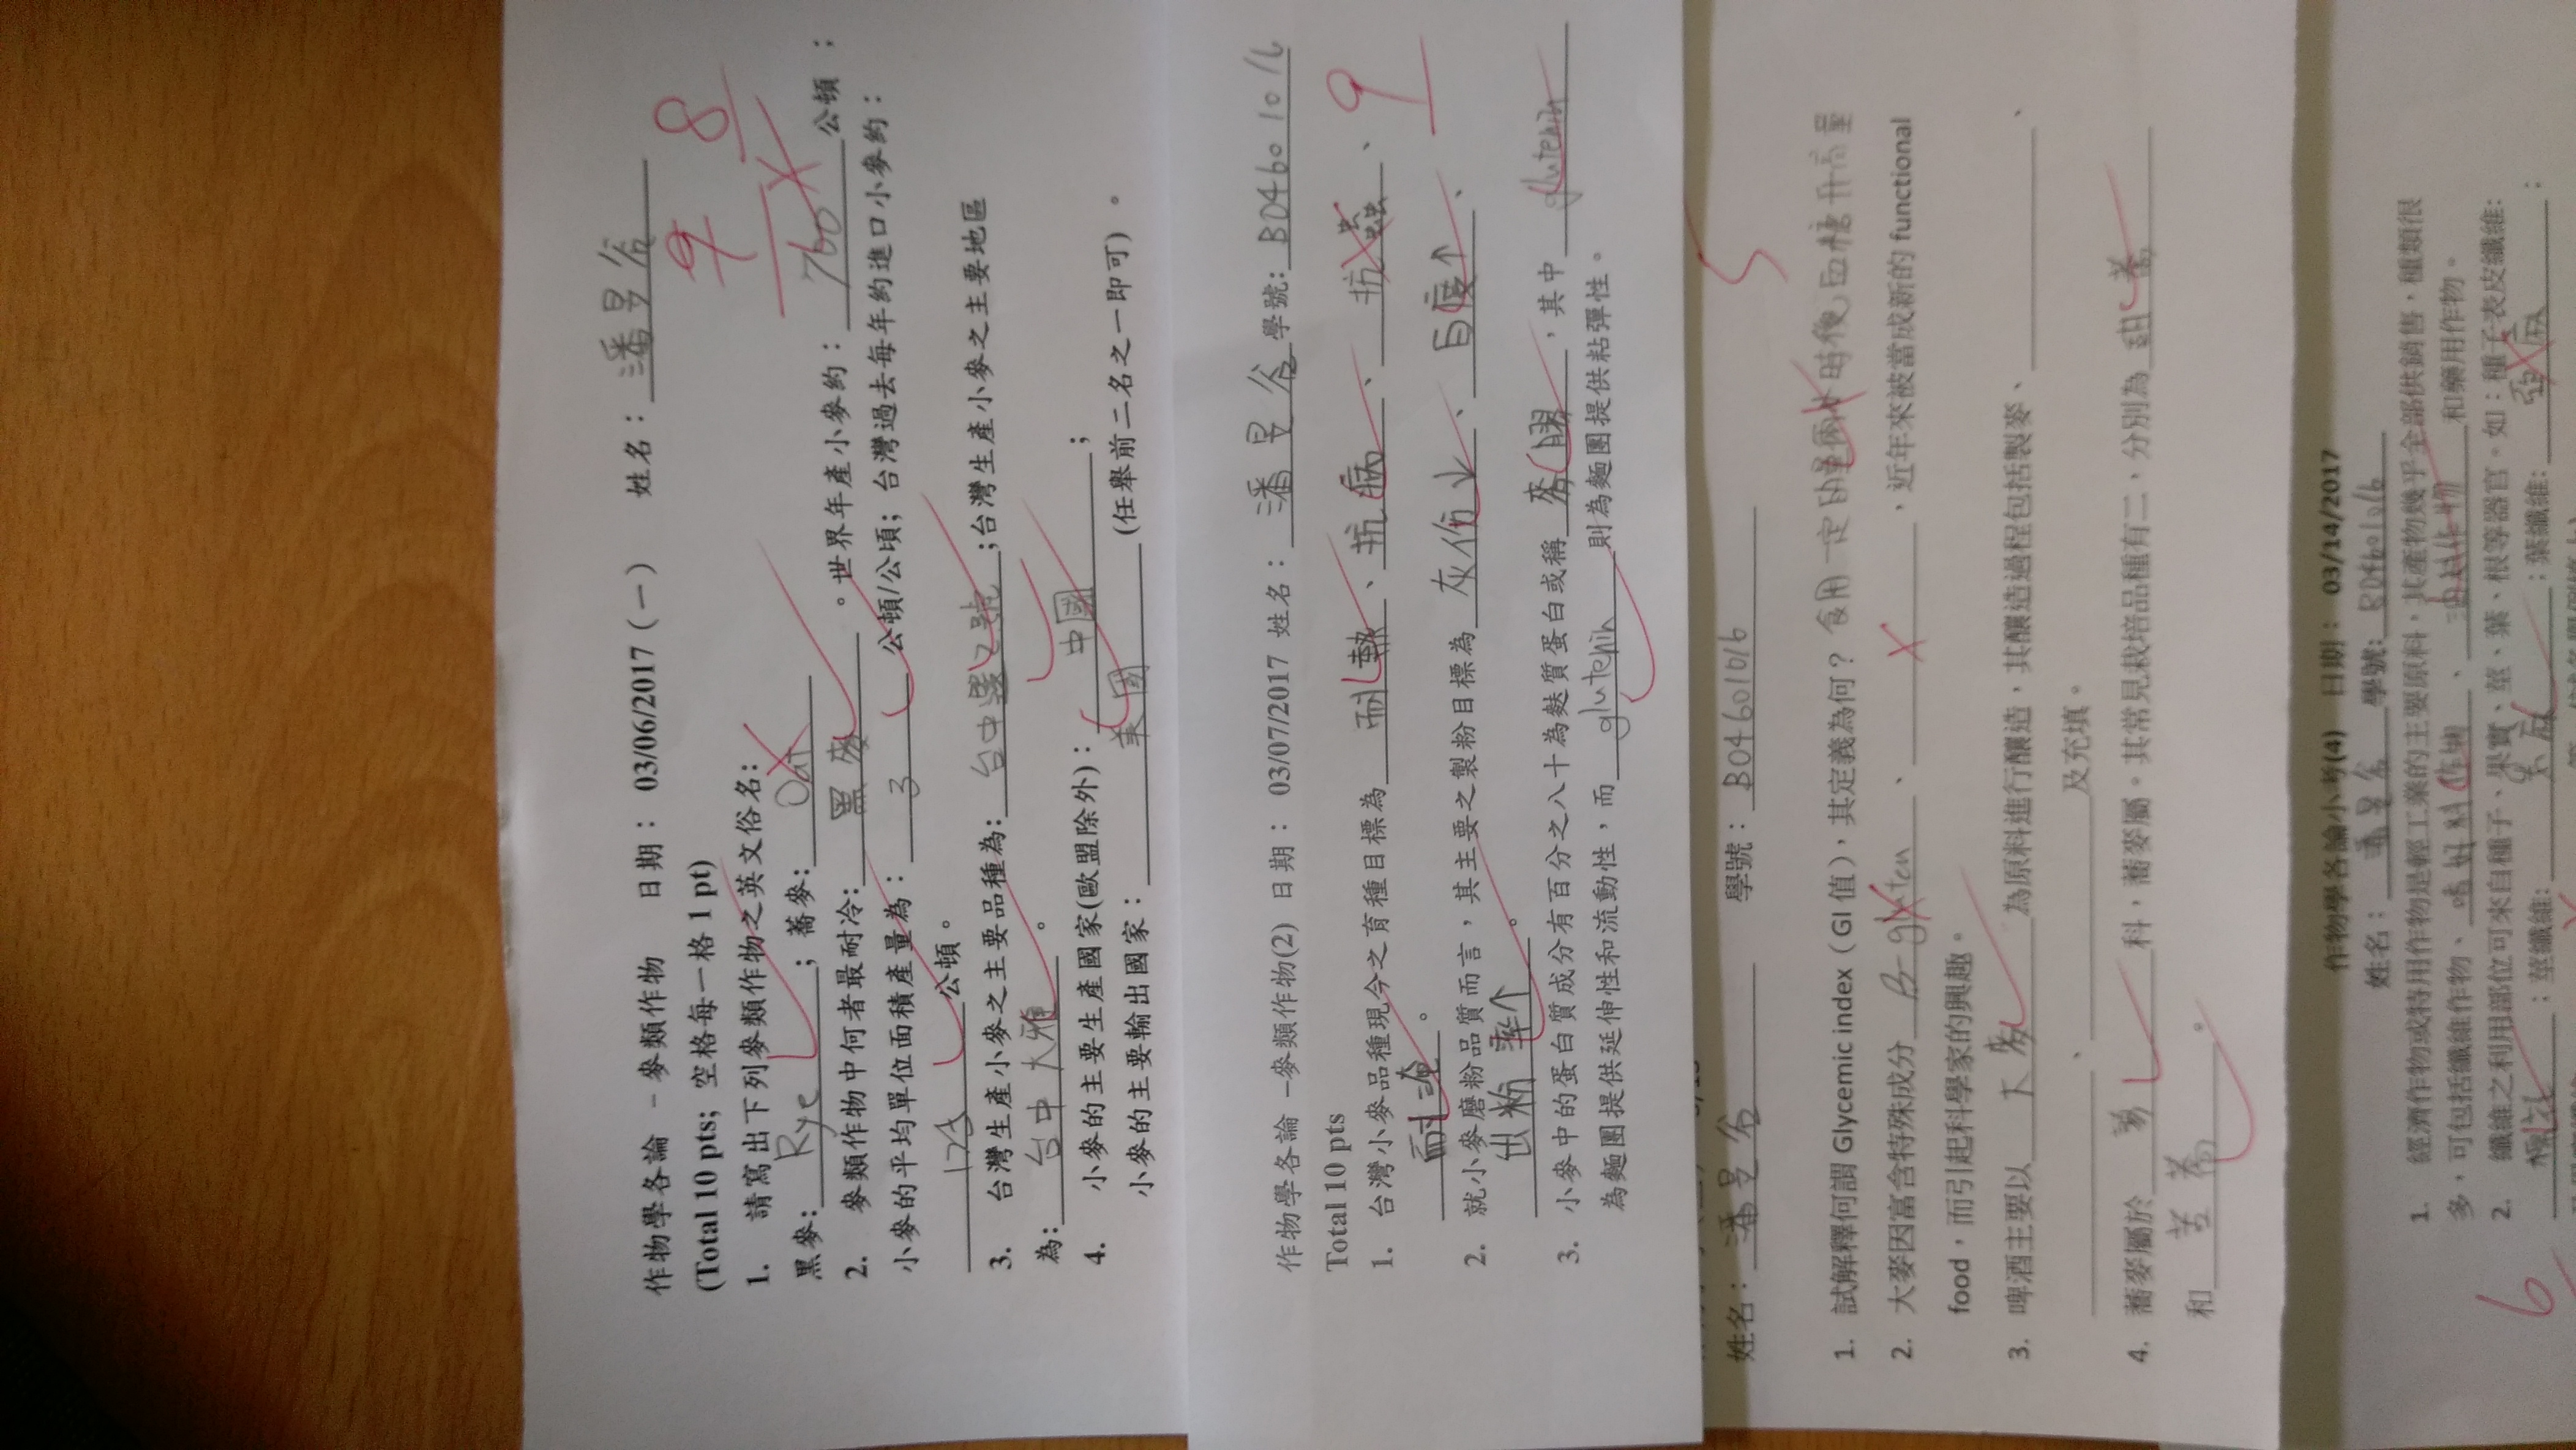 作物學各論 – 麥類作物 日期： 03/06/2017 (一) 姓名： 潘旻谷
(Total 10 pts; 空格每一格 1 pt)
9 8
1. 請寫出下列麥類作物之英文俗名:
黑麥: Rye ; 蕎麥: Oat
2. 麥類作物中何者最耐冷: 黑麥 。世界年產小麥約： 760 公頓；
小麥的平均單位面積產量為： 3 公頓/公頃; 台灣過去每年約進口小麥約：
公頓。
3. 台灣生產小麥之主要品種為: 台中選2號 ;台灣生產小麥之主要地區
為: 台中大雅 。
4. 小麥的主要生產國家(歐盟除外)： 中國 ;
小麥的主要輸出國家： 美國 (任舉前二名之一即可) 。
作物學各論 –麥類作物(2) 日期： 03/07/2017 姓名： 潘旻谷 學號: B04601016
Total 10 pts
9
1. 台灣小麥品種現今之育種目標為 耐熱 、 抗病 、 抗蟲 、
。
2. 就小麥磨粉品質而言，其主要之製粉目標為 灰份↓ 、 白度↑ 、
出粉率↑ 。
3. 小麥中的蛋白質成分有百分之八十為麩質蛋白或稱 麥膠 ，其中 glutenin
為麵團提供延伸性和流動性，而 glutenin 則為麵團提供粘彈性。
姓名： 潘旻谷 學號： B04601016
5
1. 試解釋何謂 Glycemic index（GI 值），其定義為何？ 食用一定量兩小時後血糖升高量
2. 大麥因富含特殊成分 B-gluten 、 ，近年來被當成新的 functional
food，而引起科學家的興趣。
3. 啤酒主要以 大麥 為原料進行釀造，其釀造過程包括製麥、 、
、 及充填。
4. 蕎麥屬於 蓼 科，蕎麥屬。其常見栽培品種有二，分別為 甜蕎
和 苦蕎 。
作物學各論小考(4) 日期： 03/14/2017
姓名： 潘旻谷 學號: B04601016
1. 經濟作物或特用作物是輕工業的主要原料，其產物幾乎全部供銷售，種類很
多，可包括纖維作物、 嗜好料作物 、 油料作物 和藥用作物。
2. 纖維之利用部位可來自種子、果實、莖、葉、根等器官。如：種子表皮纖維:
棉花 ；莖纖維: 黃麻 ；葉纖維: 亞麻 ：
6